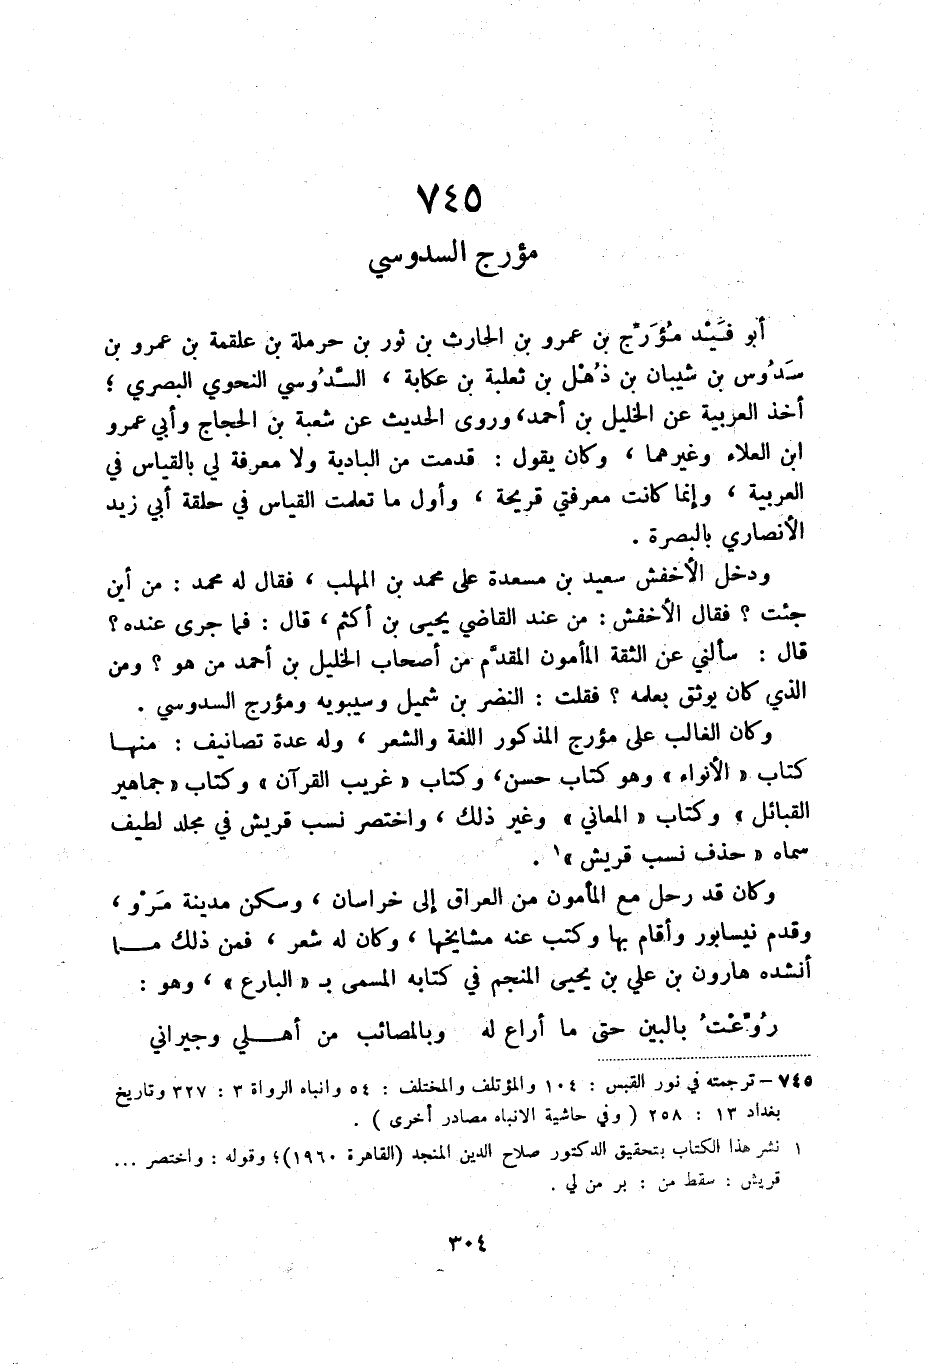 ٧٤٥
مؤرج السدوسي
أبو فَيْد مُؤَرّج بن عمرو بن الحارث بن ثور بن حرملة بن علقمة بن عمرو بن
سَدُوس بن شيبان بن ذُهْل بن ثعلبة بن عكابة ، السَّدُوسي النحوي البصري ؛
أخذ العربية عن الخليل بن أحمد، وروى الحديث عن شعبة بن الحجاج وأبي عمرو
ابن العلاء وغيرهما ، وكان يقول : قدمت من البادية ولا معرفة لي بالقياس في
العربية ، وإنما كانت معرفتي قريحة ، وأول ما تعلمت القياس في حلقة أبي زيد
الأنصاري بالبصرة .
ودخل الأخفش سعيد بن مسعدة على محمد بن المهلب ، فقال له محمد : من أين
جئت ؟ فقال الأخفش : من عند القاضي يحيى بن أكثم ، قال : فما جرى عنده ؟
قال : سألني عن الثقة المأمون المقدَّم من أصحاب الخليل بن أحمد من هو ؟ ومن
الذي كان يوثق بعلمه ؟ فقلت : النضر بن شميل وسيبويه ومؤرج السدوسي .
وكان الغالب على مؤرج المذكور اللغة والشعر ، وله عدة تصانيف : منهـا
كتاب « الأنواء » وهو كتاب حسن، وكتاب « غريب القرآن » وكتاب « جماهير
القبائل » وكتاب « المعاني » وغير ذلك ، واختصر نسب قريش في مجلد لطيف
سماه « حذف نسب قريش »١ .
وكان قد رحل مع المأمون من العراق إلى خراسان ، وسكن مدينة مَرْو ،
وقدم نيسابور وأقام بها وكتب عنه مشايخها ، وكان له شعر ، فمن ذلك مـــا
أنشده هارون بن علي بن يحيى المنجم في كتابه المسمى بـ « البارع » ، وهو :
رُوِّعْتُ بالبين حتى ما أراع له وبالمصائب من أهـــلي وجيراني
٧٤٥ - ترجمته في نور القبس : ١٠٤ والمؤتلف والمختلف : ٥٤ وانباه الرواة ٣ : ٣٢٧ وتاريخ
بغداد ١٣ : ٢٥٨ ( وفي حاشية الانباه مصادر أخرى ) .
١ نشر هذا الكتاب بتحقيق الدكتور صلاح الدين المنجد (القاهرة ١٩٦٠)؛ وقوله : واختصر ...
قريش : سقط من : بر من لي .
٣٠٤